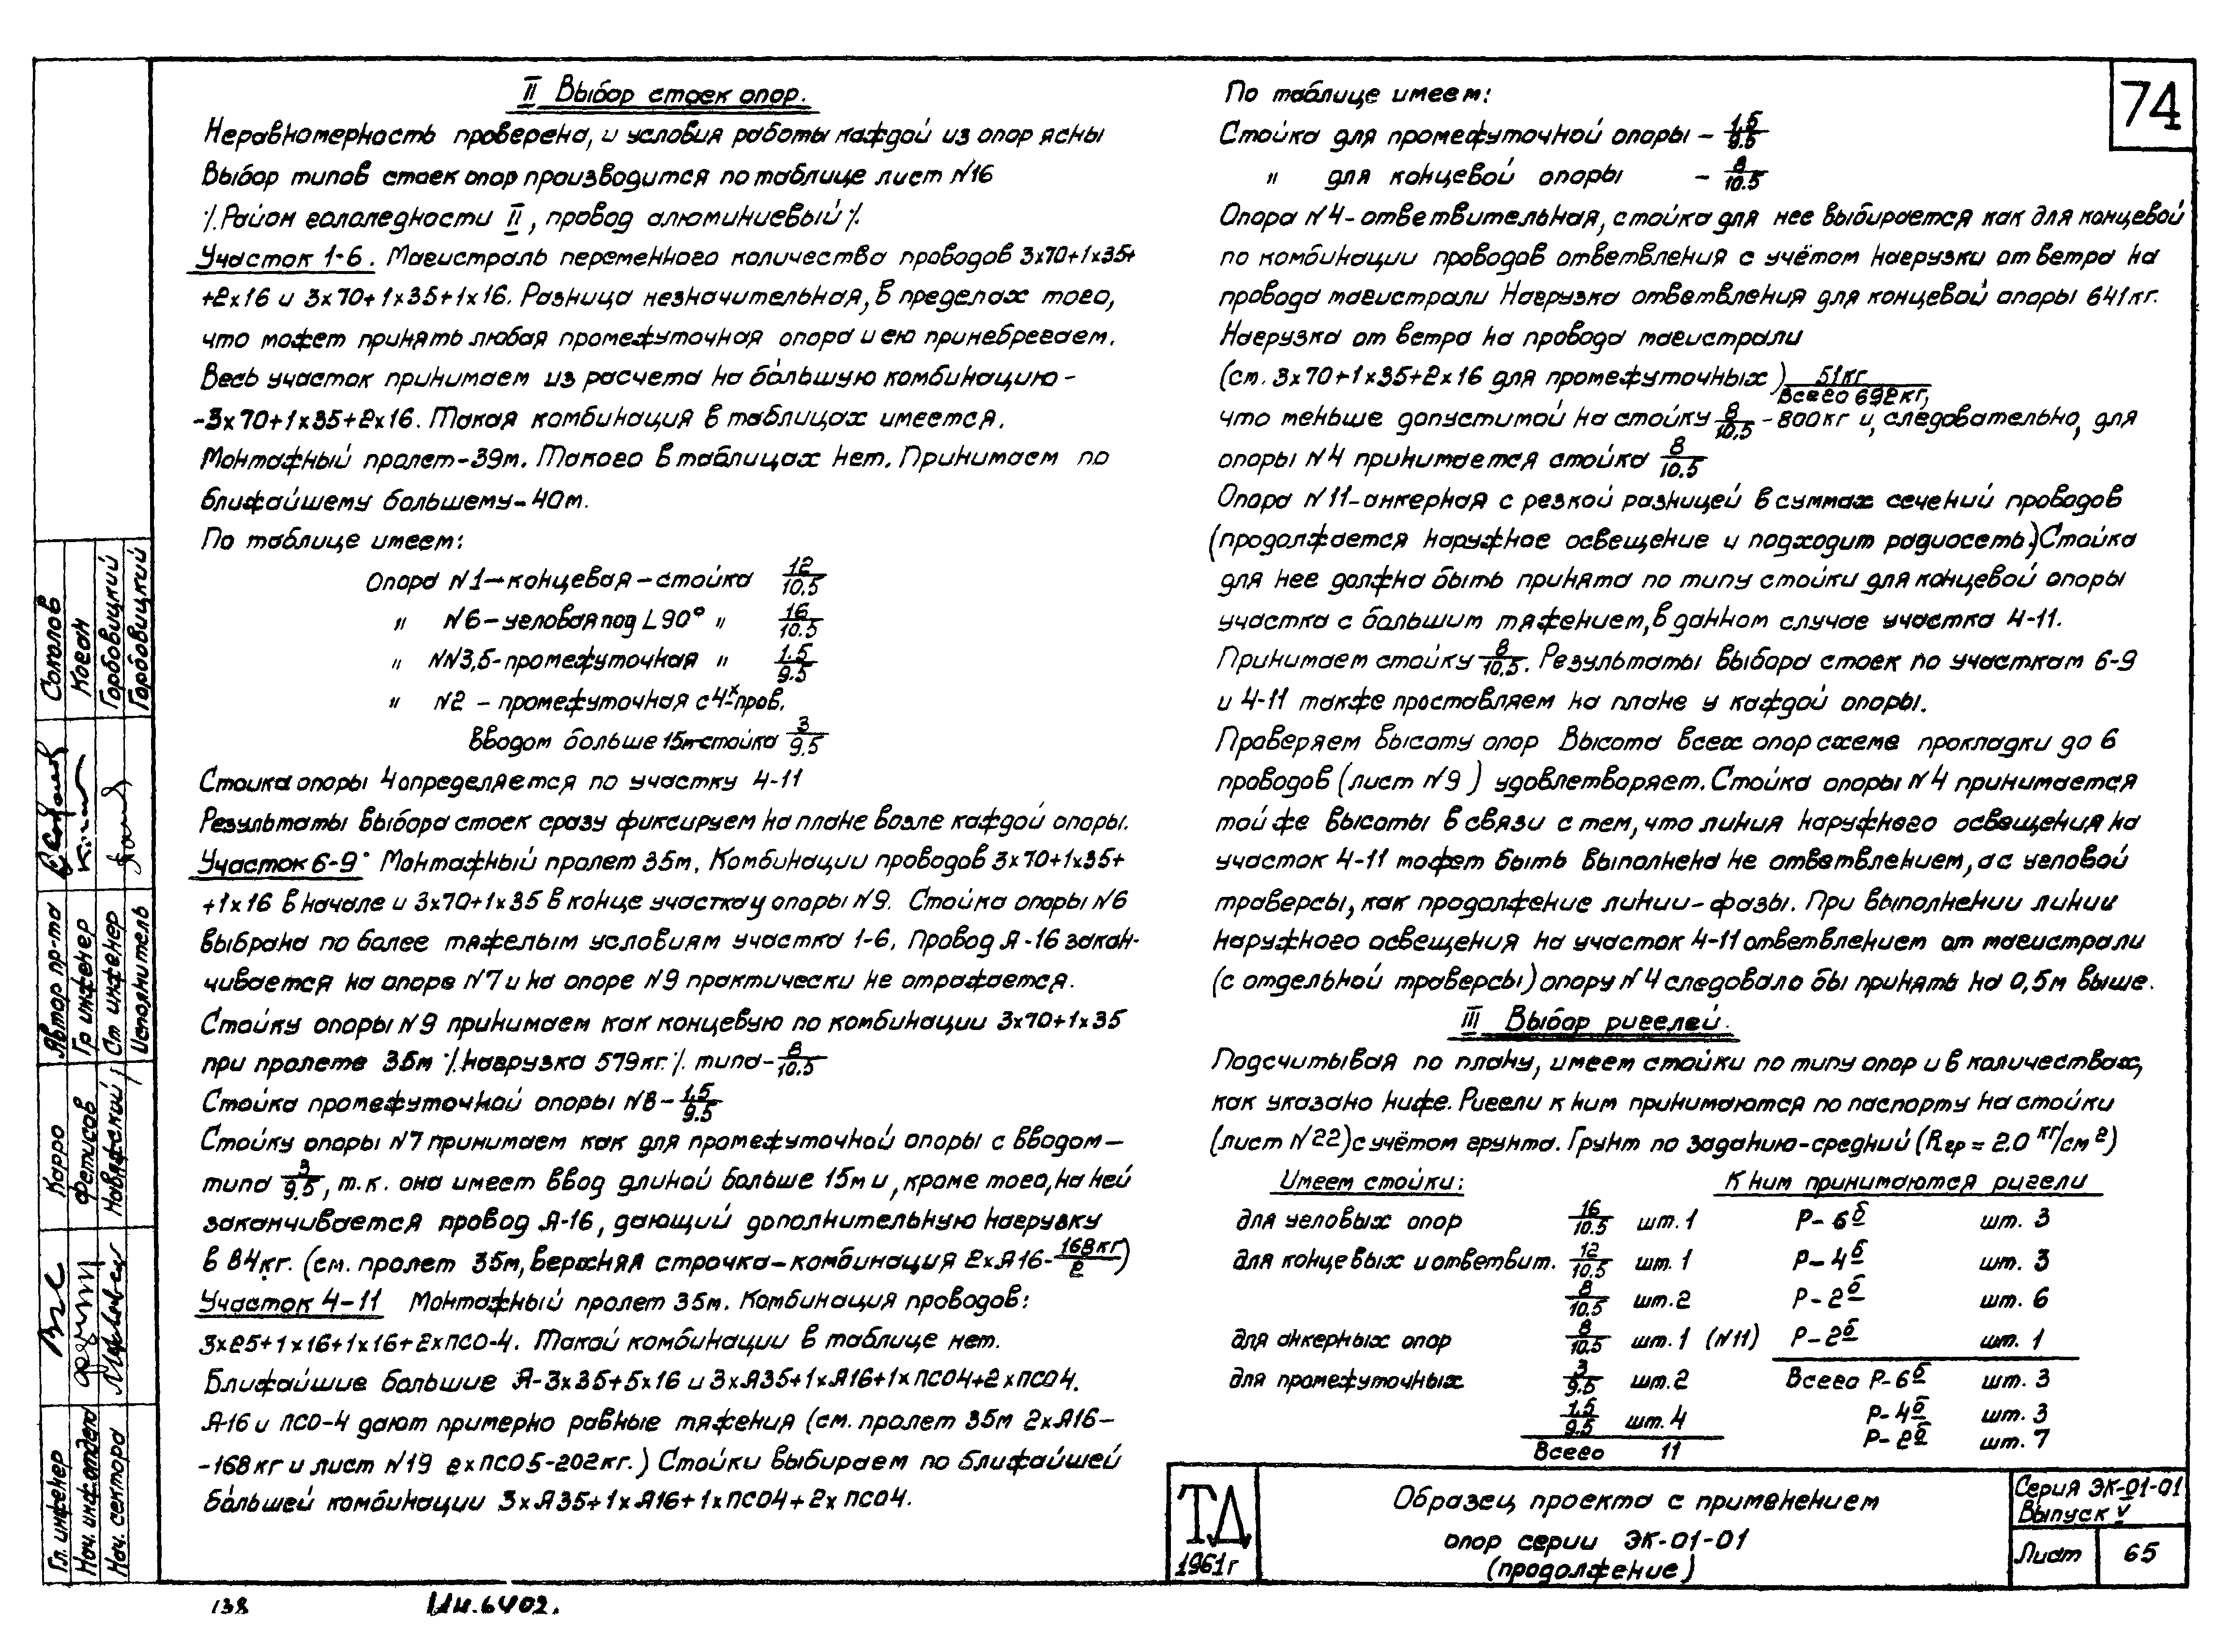 74
II Выбор стоек опор.
Неравномерность проверена, и условия работы каждой из опор ясны
Выбор типов стоек опор производится по таблице лист №16
/.Район гололедности II, провод алюминиевый/.
Участок 1-6. Магистраль переменного количества проводов 3х70+1х35+
+2х16 и 3х70+1х35+1х16. Разница незначительная, в пределах того,
что может принять любая промежуточная опора и ею принебрегаем.
Весь участок принимаем из расчета на бо́льшую комбинацию-
-3х70+1х35+2х16. Такая комбинация в таблицах имеется.
Монтажный пролет-39м. Такого в таблицах нет. Принимаем по
ближайшему большему-40м.
По таблице имеем:
Опора №1-концевая-стойка 12/10.5
" №6-угловая под L90° " 16/10.5
" №№3,5-промежуточная " 1.5/9.5
" №2 - промежуточная с 4х пров.
Вводом больше 15м-стойка 3/9.5
Стоика опоры 4 определяется по участку 4-11
Результаты выбора стоек сразу фиксируем на плане возле каждой опоры.
Участок 6-9. Монтажный пролет 35м. Комбинации проводов 3х70+1х35+
+1х16 в начале и 3х70+1х35 в конце участка у опоры №9. Стойка опоры №6
выбрана по более тяжелым условиям участка 1-6. Провод А-16 закан-
чивается на опоре №7 и на опоре №9 практически не отражается.
Стойку опоры №9 принимаем как концевую по комбинации 3х70+1х35
при пролете 35м /.нагрузка 579кг./. типа-8/10.5
Стойка промежуточной опоры №8-1.5/9.5
Стойку опоры №7 принимаем как для промежуточной опоры с вводом-
типа 3/9.5, т.к. она имеет ввод длиной больше 15м и, кроме того, на ней
заканчивается провод А-16, дающий дополнительную нагрузку
в 84кг. (см. пролет 35м, верхняя строчка-комбинация 2хА16-168кг/2)
Участок 4-11 Монтажный пролет 35м. Комбинация проводов:
3х25+1х16+1х16+2хПСО-4. Такой комбинации в таблице нет.
Ближайшие большие А-3х35+5х16 и 3хА35+1хА16+1хПСО4+2хПСО4.
А-16 и ПСО-4 дают примерно равные тяжения (см. пролет 35м 2хА16-
-168кг и лист №19 2хПСО5-202кг.) Стойки выбираем по ближайшей
бо́льшей комбинации 3хА35+1хА16+1хПСО4+2хПСО4.
По таблице имеем:
Стойка для промежуточной опоры - 1.5/9.5
" для концевой опоры - 8/10.5
Опора №4-ответвительная, стойка для нее выбирается как для концевой
по комбинации проводов ответвления с учётом нагрузки от ветра на
провода магистрали Нагрузка ответвления для концевой опоры 641кг.
Нагрузка от ветра на провода магистрали
(ст. 3х70+1х35+2х16 для промежуточных) 51кг
Всего 692кг,
что меньше допустимой на стойку 8/10.5-800кг и, следовательно, для
опоры №4 принимается стойка 8/10.5
Опора №11-анкерная с резкой разницей в суммах сечений проводов
(продолжается наружное освещение и подходит радиосеть.) Стойка
для нее должна быть принята по типу стойки для концевой опоры
участка с большим тяжением, в данном случае участка 4-11.
Принимаем стойку 8/10.5. Результаты выбора стоек по участкам 6-9
и 4-11 также проставляем на плане у каждой опоры.
Проверяем высоту опор Высота всех опор схеме прокладки до 6
проводов (лист №9) удовлетворяет. Стойка опоры №4 принимается
той же высоты в связи с тем, что линия наружного освещения на
участок 4-11 может быть выполнена не ответвлением, а с угловой
траверсы, как продолжение линии-фазы. При выполнении линии
наружного освещения на участок 4-11 ответвлением от магистрали
(с отдельной траверсы) опору №4 следовало бы принять на 0,5м выше.
III Выбор ригелей.
Подсчитывая по плану, имеем стойки по типу опор и в количествах,
как указано ниже. Ригели к ним принимаются по паспорту на стойки
(лист №22) с учётом грунта. Грунт по заданию-средний (Rгр = 2.0 кг/см²)
Имеем стойки: К ним принимаются ригели
для угловых опор 16/10.5 шт. 1 Р-6б шт. 3
для концевых и ответвит. 12/10.5 шт. 1 Р-4б шт. 3
8/10.5 шт. 2 Р-2б шт. 6
для анкерных опор 8/10.5 шт. 1 (№11) Р-2б шт. 1
для промежуточных 3/9.5 шт. 2 Всего Р-6б шт. 3
1.5/9.5 шт. 4 Р-4б шт. 3
Р-2б шт. 7
Всего 11
ТД
1961г
Образец проекта с применением
опор серии ЭК-01-01
(продолжение)
Серия ЭК-01-01
Выпуск V
Лист 65
Гл. инженер
Нач. инж. отдела
Нач. сектора
Карро
Фетисов
Навяжский
Автор пр-та
Гр инженер
Ст инженер
Исполнитель
Соколов
Коган
Горбовицкий
Горбовицкий
138
Ин.6402.